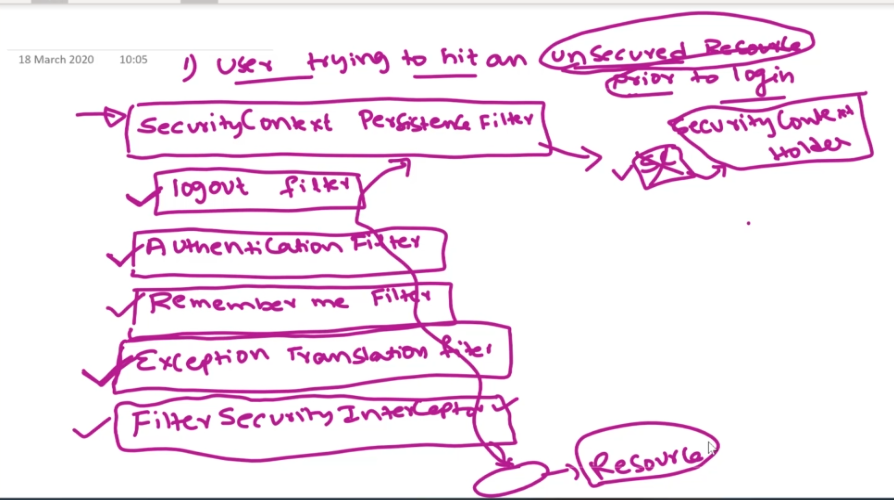 18 March 2020 10:05
1) User trying to hit an unSecured Resource
prior to login
SecurityContext Persistence Filter
SecurityContext
Holder
SC
logout filter
Authentication Filter
Remember me Filter
Exception Translation filter
Filter Security Interceptor
Resource